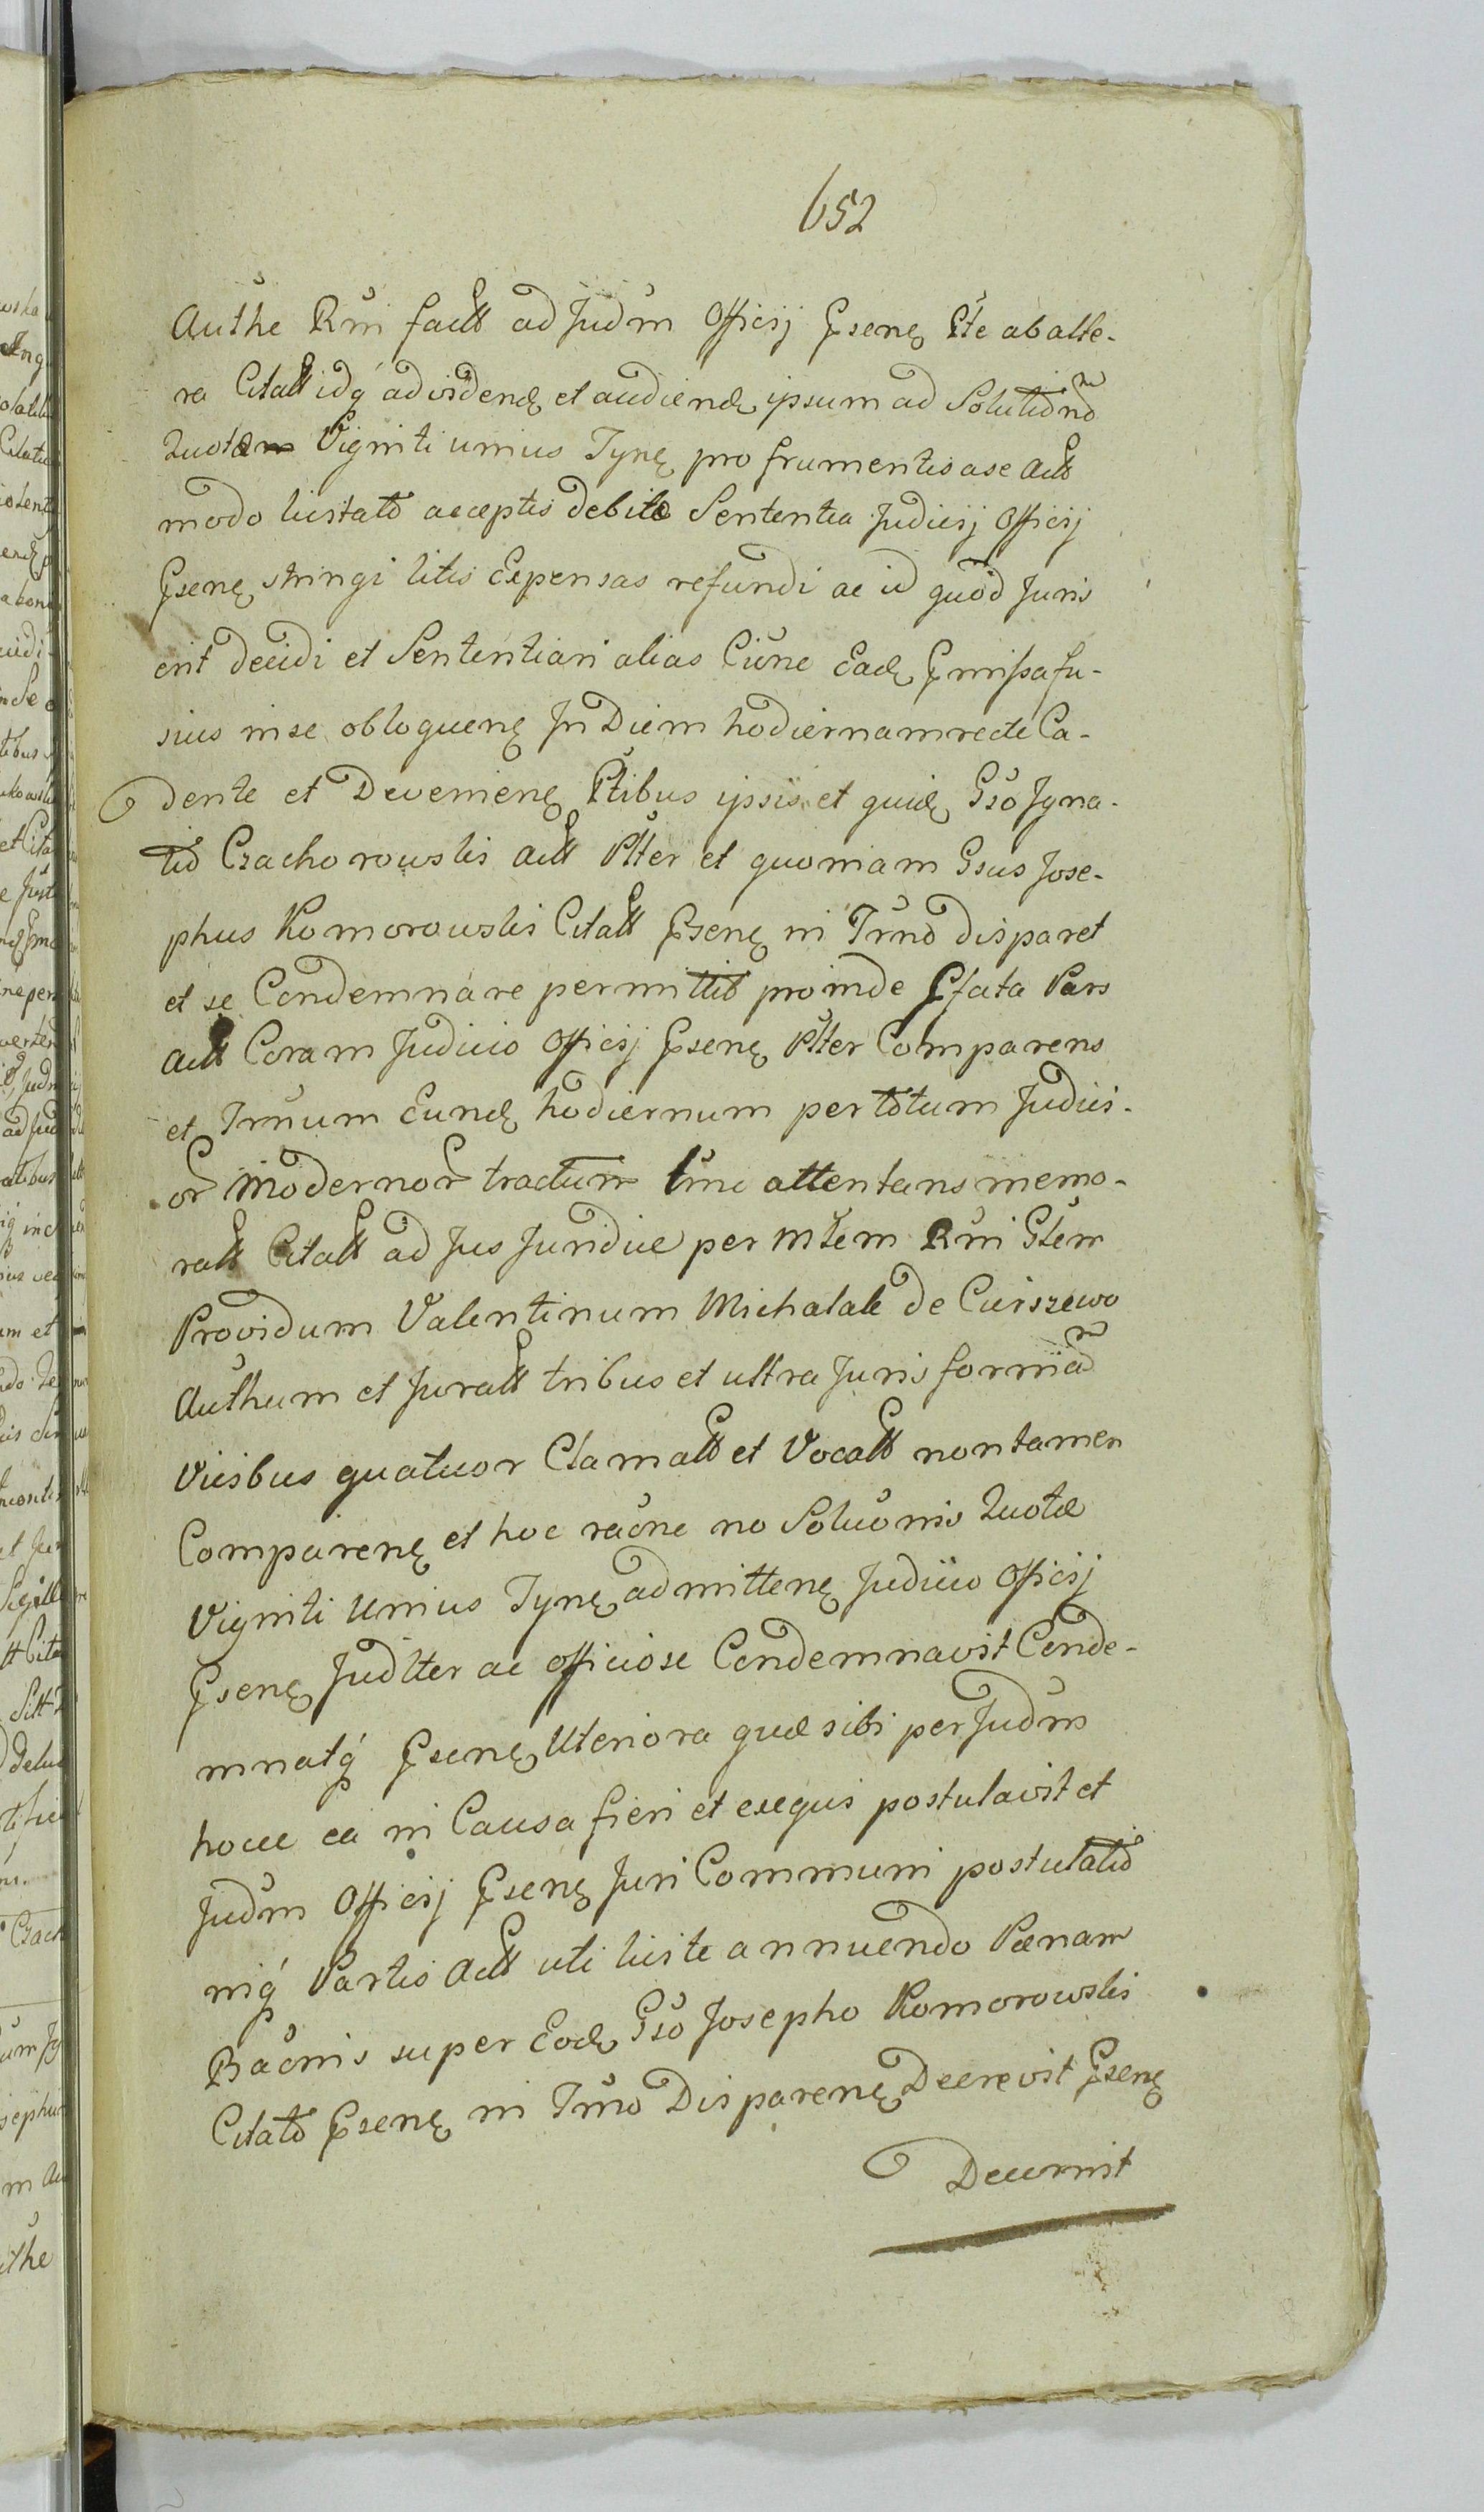 652
Authe Rni fact ad Judm Officij Psens Pte ab alte-
ra Citatt idq́ ad vidend et audiend ipsum ad Solutionem
Quotam Viginti unius Tynf pro frumentis a se Act
modo lustrato acceptis debite Sententia Judicij Officij
Psens stringi litis Expensas refundi ac id quod Juris
erit decidi et Sententiari alias Citne Ead Pmissa fu-
sius in se obloquens In Diem hodiernam recte Ca-
dente et Deveniens Ptibus ipsis et quid Gso Igna-
tio Czachorowskis Actt Pltter et quoniam Gsus Jose-
phus Komorowskis Citatt Psens in Trno disparet
et se Condemnare permittit proinde Pfata Pars
Actt Coram Judicio Officij Psens Pltter Comparens
et Trnum Eund hodiernum per totum Judici-
or Modernor tractum hinc attentans memo-
ratt Citatt ad Jus Juridice per Mtem Rni Gtem
Providum Valentinum Michalak de Curszewo
Authum et Juratt tribus et ultra Juris formam
Vicibus quatuor Clamatt et Vocatt non tamen
Comparens et hoc raone no Soluonis Quotæ
Viginti Unius Tynf admittens Judicio Officij
Psens Judltter ac officiose Condemnavit Conde-
mnatq́ Psens Ulteriora quæ sibi per Judm
hocce ea in Causa fieri et exequi postulavit et
Judm Officij Psens Juri Communi postulatio
niq́ Partis Actt uti iuste annuendo Pœnam
Baonis super Eod Gso Josepho Komorowskis
Citato Psens in Trno Disparens Decrevit Psens
Decernit